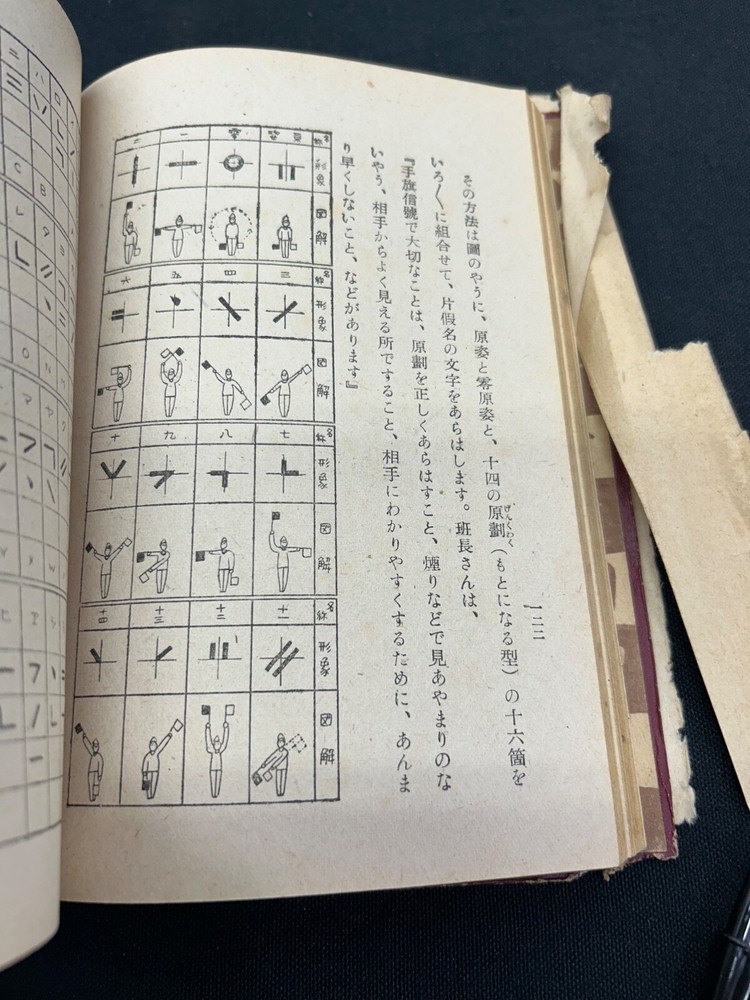 一二二
その方法は圖のやうに、原姿と零原姿と、十四の原劃（もとになる型）の十六箇を
げんくわく
いろ〳〵に組合せて、片假名の文字をあらはします。班長さんは、
『手旗信號で大切なことは、原劃を正しくあらはすこと、煙りなどで見あやまりのな
いやう、相手からよく見える所ですること、相手にわかりやすくするために、あんま
り早くしないこと、などがあります』
名称 原姿 零 一 二
形象
図解
名称 三 四 五 六
形象
図解
名称 七 八 九 十
形象
図解
名称 十一 十二 十三 十四
形象
図解
二 ハ ロ
C B
レ タ
O N M
ヤ マ
Y X W
ヒ ヱ シ